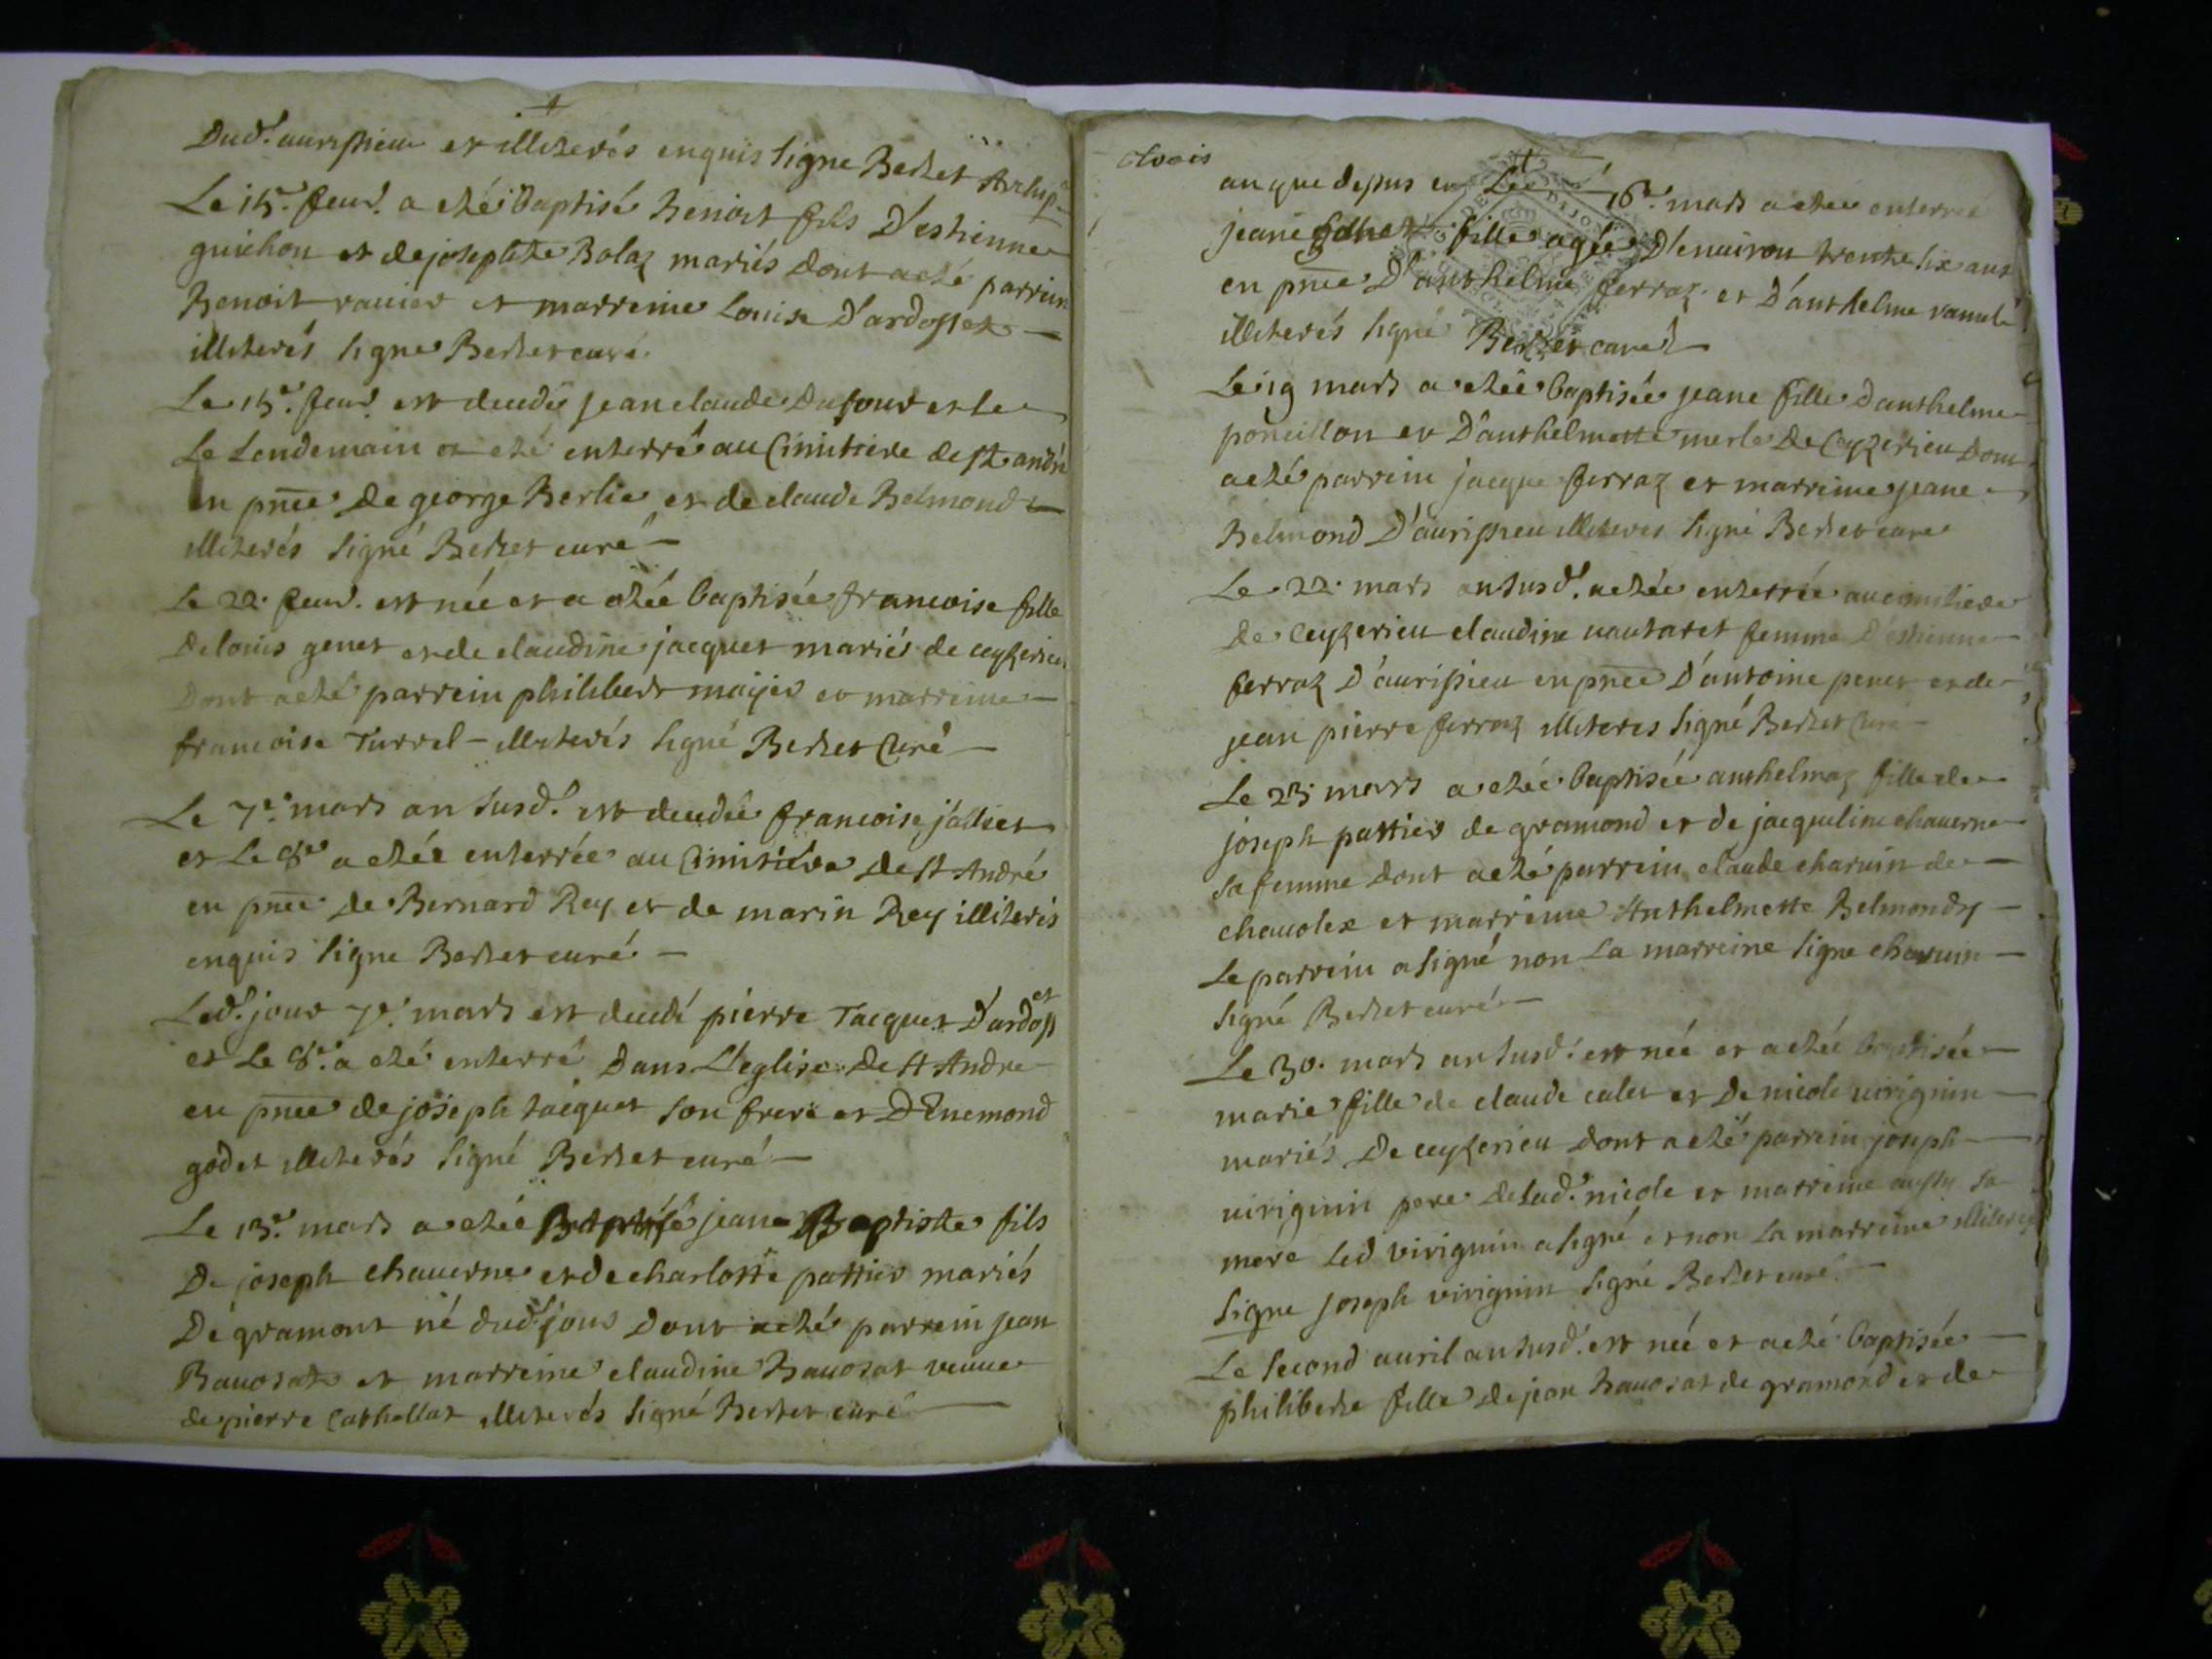 Dud.^t aurissieu et illiterés enquis signe Berlet Archip.
Le 15.^e feur. a eté baptisé Benoit fils D'estienne
guichon et de josephte Bolaz mariés dont a eté parrin
Benoit ranier et marreine Louise D'ardosset
illiterés signe Berlet curé
Le 15.^e feur. est decedé jean claude Dufour et le
Le Lendemain a eté enterré au Cimitiere de st andré
en pnce de george Berlie et de claude Belmond
illiterés signé Berlet curé
Le 22. feur. est née et a etée baptisée francoise fille
De louis genet et de claudine jacquet mariés de ceyzerieu
Dont a eté parrein philibert maijer et marreine
francoise Turrel illiterés signé Berlet Curé
Le 7.^e mars an susd.^t est decedée francoise jalliet
et Le 8^e a etée enterrée au Cimitiére de st André
en pnce de Bernard Rey et de marin Rey illiteris
enquis signe Berlet curé
Led.^t jour 7.^e mars est decedé pierre Tacquet D'ardoss^et
et Le 8.^e a eté enterré Dans L'eglise de st Andre
en pnce de joseph tacquet son frere et D Enemond
godet illiterés signé Berlet curé
Le 13.^e mars a etée Baptisé jean Baptiste fils
De joseph chauerne et de charlotte pattier mariés
De gramont né dud.^t jour Dont a eté parrein jean
Bauosat et marreine claudine Bauosat veuue
de pierre Cathellat illiterés signé Berlet curé
an que desus et Le 16.^e mars a etée enterrée
jeane fille agée D'enuiron trente six ans
en pnce D'anthelme ferraz et D'anthelme
illiterés signé Berlet curé
Le 19 mars a etée baptisée jeane fille D'anthelme
poncillon et D'anthelmette merle De Ceyzerieu Dont
a eté parrein jacque ferraz et marreine jeane
Belmond D'aurissieu illiteres signé Berlet cure
Le 22. mars an susd.^t a etée enterrée au cimitiere
de Ceyzerieu claudine uautaret femme D'estienne
ferraz D'aurissieu en pnce D'antoine penet et de
jean pierre ferraz illiteres signé Berlet Curé
Le 23 mars a etée baptisée anthelmaz fille de
joseph pattier de gramond et de jacqueline chauerne
sa femme dont a eté parrein claude charuin de
chauolex et marreine Anthelmette Belmondy
Le parrein a signé non La marreine signe charuin
signé Berlet curé
Le 30. mars an susd.^t est née et a etée baptisée
marie fille de claude calet et De nicole uirignin
mariés De ceyzerieu Dont a eté parrein joseph
uirignin pere de lad.^t nicole et marreine aussy sa
mère Led virignin a signé et non La marreine illiterés
signe joseph virignin signé Berlet curé
Le second auril an susd.^t est née et a eté baptisée
philiberte fille de jean Bauosat de gramond et de